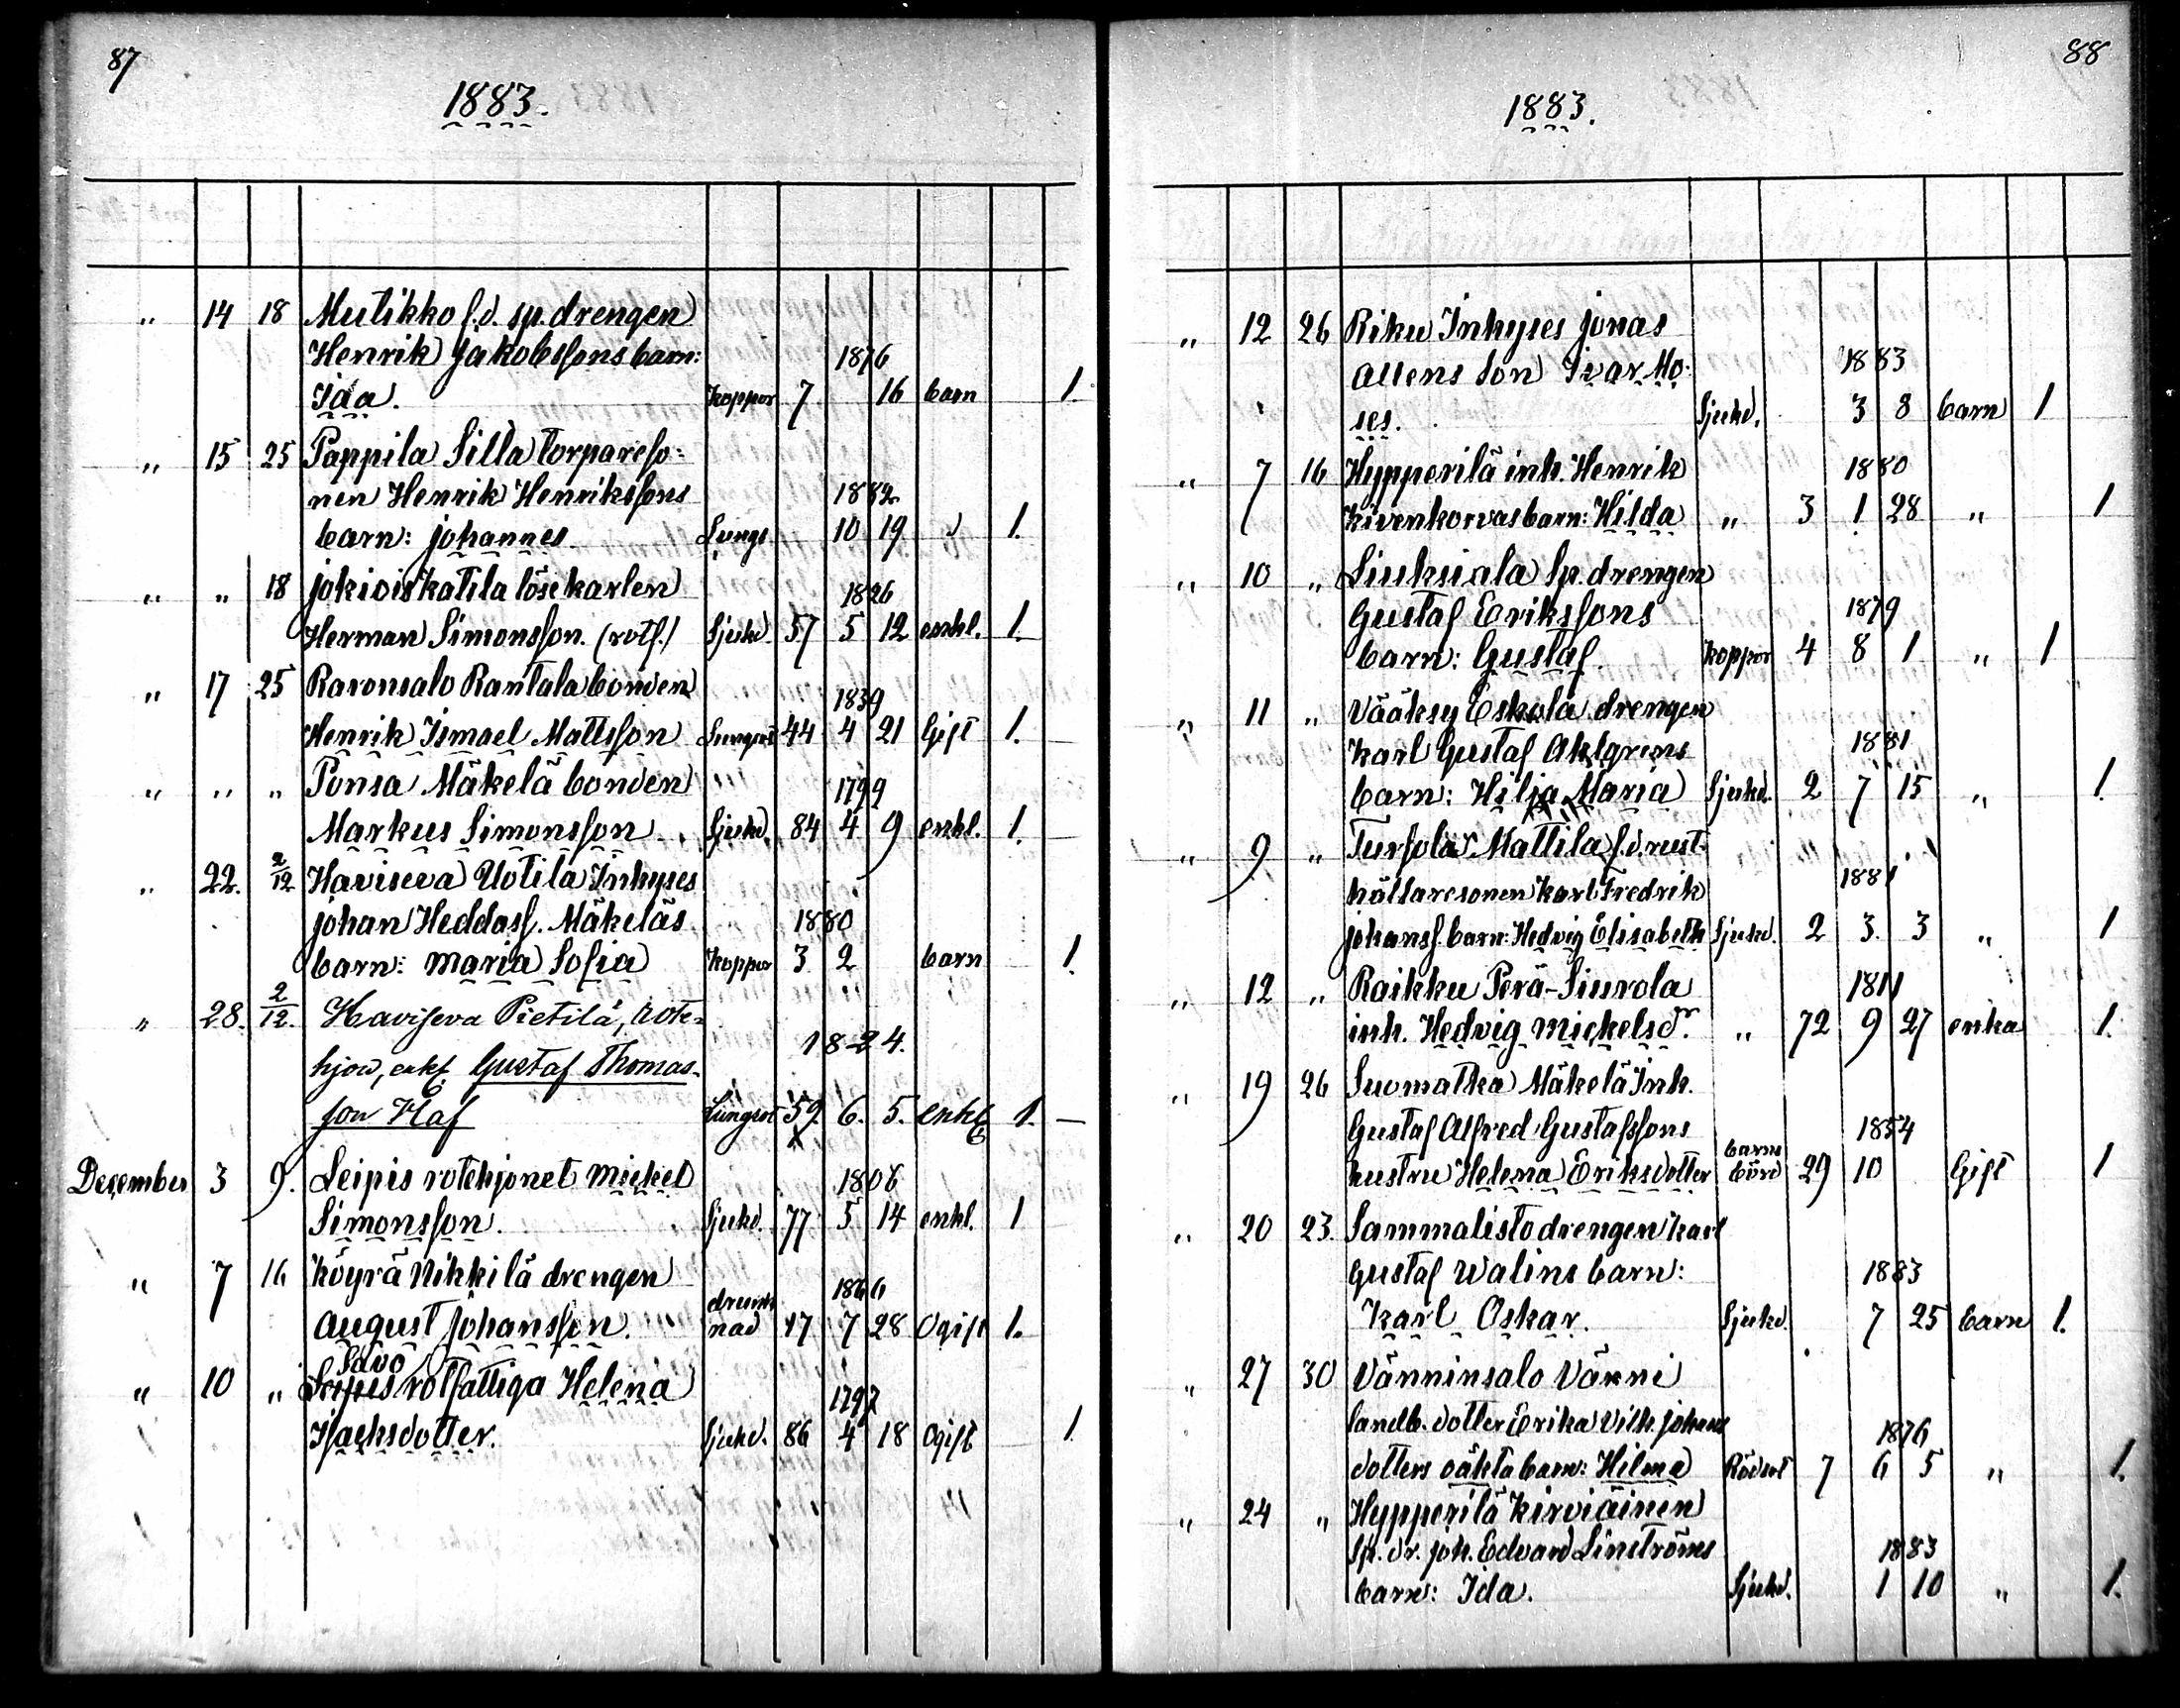 87
1883.
" 14 18 Mutikko f.d. sp. drengen
Henrik Jakobssons barn: 1876
Ida. Koppor 7 16 barn 1.
" 15 25 Pappila Silla torpareso-
nen Henrik Henrikssons 1882
barn: Johannes. Lungs. 10 19 " 1.
" " 18 Jokiois Katila lösekarlen 1826
Herman Simonsson. (rotf.) Sjukd. 57 5 12 enkl. 1.
" 17 25 Raronsalo Rantala bonden 1839
Henrik Ismael Mattsson Lungsot 44 4 21 Gift 1.
" " " Ponsa Mäkelä bonden 1799
Markus Simonsson. Sjukd. 84 4 9 enkl. 1.
" 22. 2/12 Haviseva Uotila Inhyses
Johan Heddasf. Mäkeläs 1880
barn: Maria Sofia Koppor 3 2 barn 1.
" 28. 2/12. Haviseva Pietilä, rote-
hjon, enkl. Gustaf Thomas- 1824.
son Haf Lungsot 59. 6. 5. enkl. 1.
December 3 9. Leipis rotehjonet Mickel 1806
Simonsson. Sjukd. 77 5 14 enkl. 1
" 7 16 Köyrä Nikkilä drengen 1866
August Johansson. drunk
nad 17 7 28 Ogift 1.
Savo
" 10 " Leipis rotfattiga Helena 1797
Isacksdotter. Sjukd. 86 4 18 Ogift 1
88
1883.
" 12 26 Riku Inhyses Jonas
Allens son Ivar Mo- 1883
ses. Sjukd. 3 8 barn 1
" 7 16 Hypperilä inh. Henrik 1880
Kivenkorvas barn: Hilda " 3 1 28 " 1
" 10 " Liuksiala Sp. drengen
Gustaf Erikssons 1879
barn: Gustaf. Koppor 4 8 1 " 1
" 11 " Vääksy Eskola drengen
Karl Gustaf Ahlgrens 1881
barn: Hilja Maria Sjukd. 2 7 15 " 1.
" 9 " Tursola Mattila f.d. rust-
hållaresonen Karl Fredrik 1881
Johansf. barn: Hedvig Elisabeth Sjukd. 2 3. 3 " 1
" 12 " Raikku Perä-Siurola 1811
inh. Hedvig Mickelsdr. " 72 9 27 enka 1.
" 19 26 Suomatka Mäkelä Inh.
Gustaf Alfred Gustafssons 1854
hustru Helena Eriksdotter barns
börd 29 10 Gift 1
" 20 23. Sammalisto drengen Karl
Gustaf Walins barn: 1883
Karl Oskar. Sjukd. 7 25 barn 1.
" 27 30 Vänninsalo Vänni
landb. dotter Erika Vilh. Johans 1876
dotters oäkta barn: Hilma Rödsot 7 6 5 " 1.
" 24 " Hypperilä Kirviäinen
Sp. dr. Joh. Edvard Linströms 1883
barn: Ida. Sjukd. 1 10 " 1.